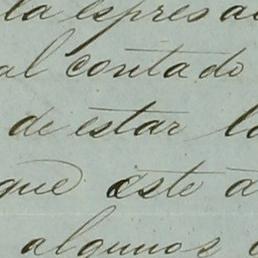 la espresa
al contado
de estar lo
que este a
algunos